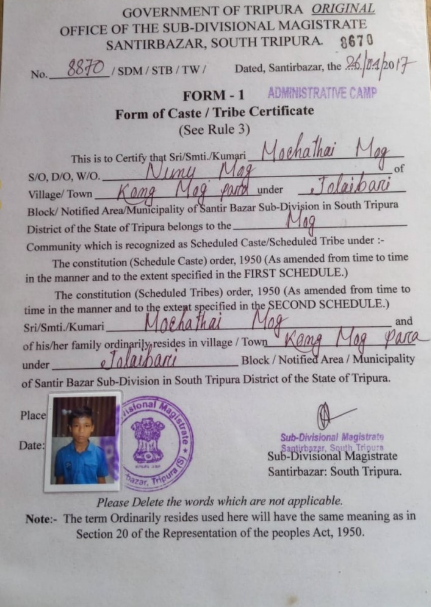 GOVERNMENT OF TRIPURA ORIGINAL
OFFICE OF THE SUB-DIVISIONAL MAGISTRATE
SANTIRBAZAR, SOUTH TRIPURA. 8670
No. 8870 / SDM / STB / TW / Dated, Santirbazar, the 26/04/2017
FORM - 1 ADMINISTRATIVE CAMP
Form of Caste / Tribe Certificate
(See Rule 3)
This is to Certify that Sri/Smti./Kumari Mochathai Mog
S/O, D/O, W/O. Numu Mog of
Village/ Town Kong Mog para under Jolaibari
Block/ Notified Area/Municipality of Santir Bazar Sub-Division in South Tripura
District of the State of Tripura belongs to the Mog
Community which is recognized as Scheduled Caste/Scheduled Tribe under :-
The constitution (Schedule Caste) order, 1950 (As amended from time to time
in the manner and to the extent specified in the FIRST SCHEDULE.)
The constitution (Scheduled Tribes) order, 1950 (As amended from time to
time in the manner and to the extent specified in the SECOND SCHEDULE.)
Sri/Smti./Kumari Mochathai Mog and
of his/her family ordinarily resides in village / Town Kong Mog para
under Jolaibari Block / Notified Area / Municipality
of Santir Bazar Sub-Division in South Tripura District of the State of Tripura.
Place
Date:
Sub-Divisional Magistrate
Santirbazar, South Tripura
Sub-Divisional Magistrate
Santirbazar: South Tripura.
Please Delete the words which are not applicable.
Note:- The term Ordinarily resides used here will have the same meaning as in
Section 20 of the Representation of the peoples Act, 1950.